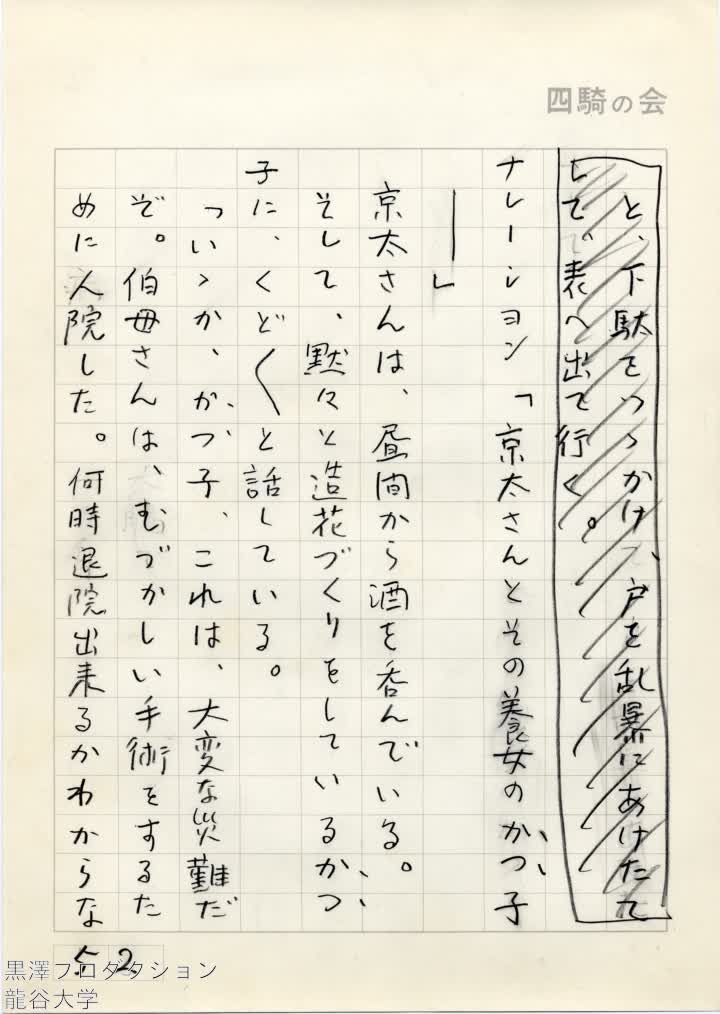 四騎の会
と、下駄をつゝかけ、戸を乱暴にあけたて
して。表へ出て行く。
ナレーション「京太さんとその養女のかつ子
――」
京太さんは、昼間から酒を呑んでいる。
そして、黙々と造花づくりをしているかつ
子に、くど〱と話している。
「いゝか、かつ子、これは、大変な災難だ
ぞ。伯母さんは、むづかしい手術をするた
めに入院した。何時退院出来るかわからな
52
黒澤プロダクション
龍谷大学